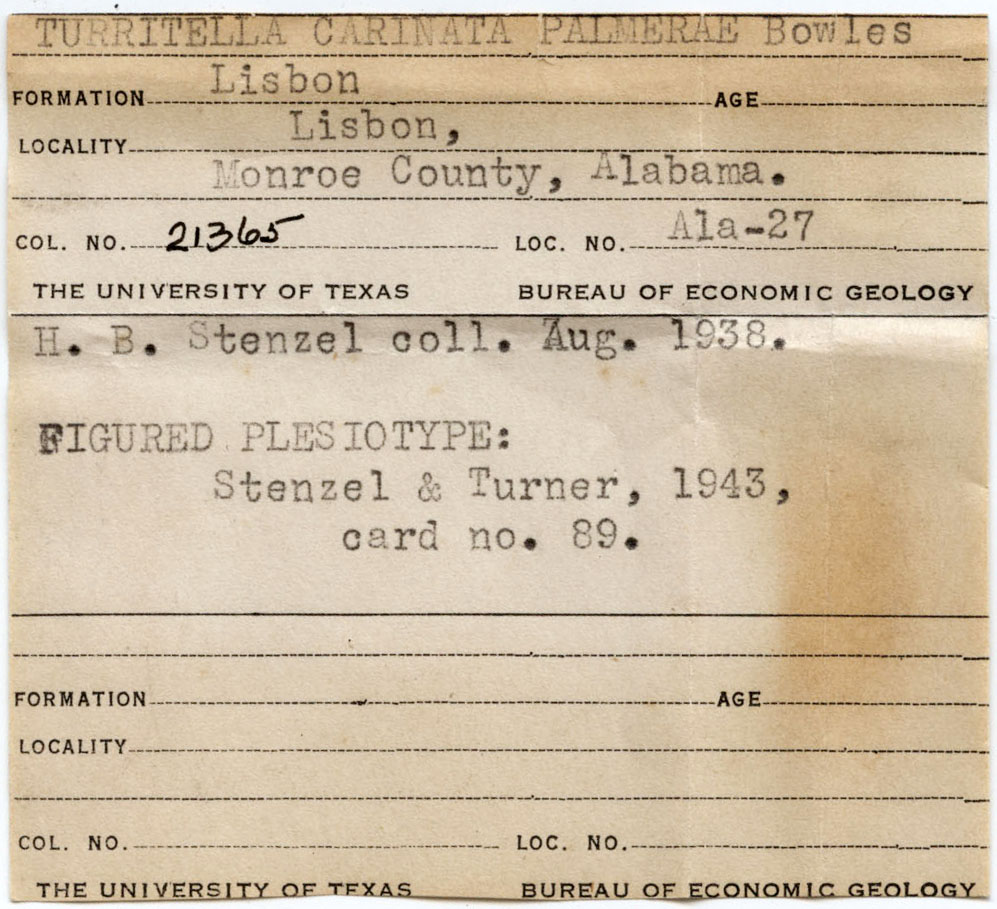 TURRITELLA CARINATA PALMERAE Bowles
FORMATION Lisbon AGE
LOCALITY Lisbon,
Monroe County, Alabama.
COL. NO. 21365 LOC. NO. Ala-27
THE UNIVERSITY OF TEXAS BUREAU OF ECONOMIC GEOLOGY
H. B. Stenzel coll. Aug. 1938.
FIGURED PLESIOTYPE:
Stenzel & Turner, 1943,
card no. 89.
FORMATION AGE
LOCALITY
COL. NO. LOC. NO.
THE UNIVERSITY OF TEXAS BUREAU OF ECONOMIC GEOLOGY